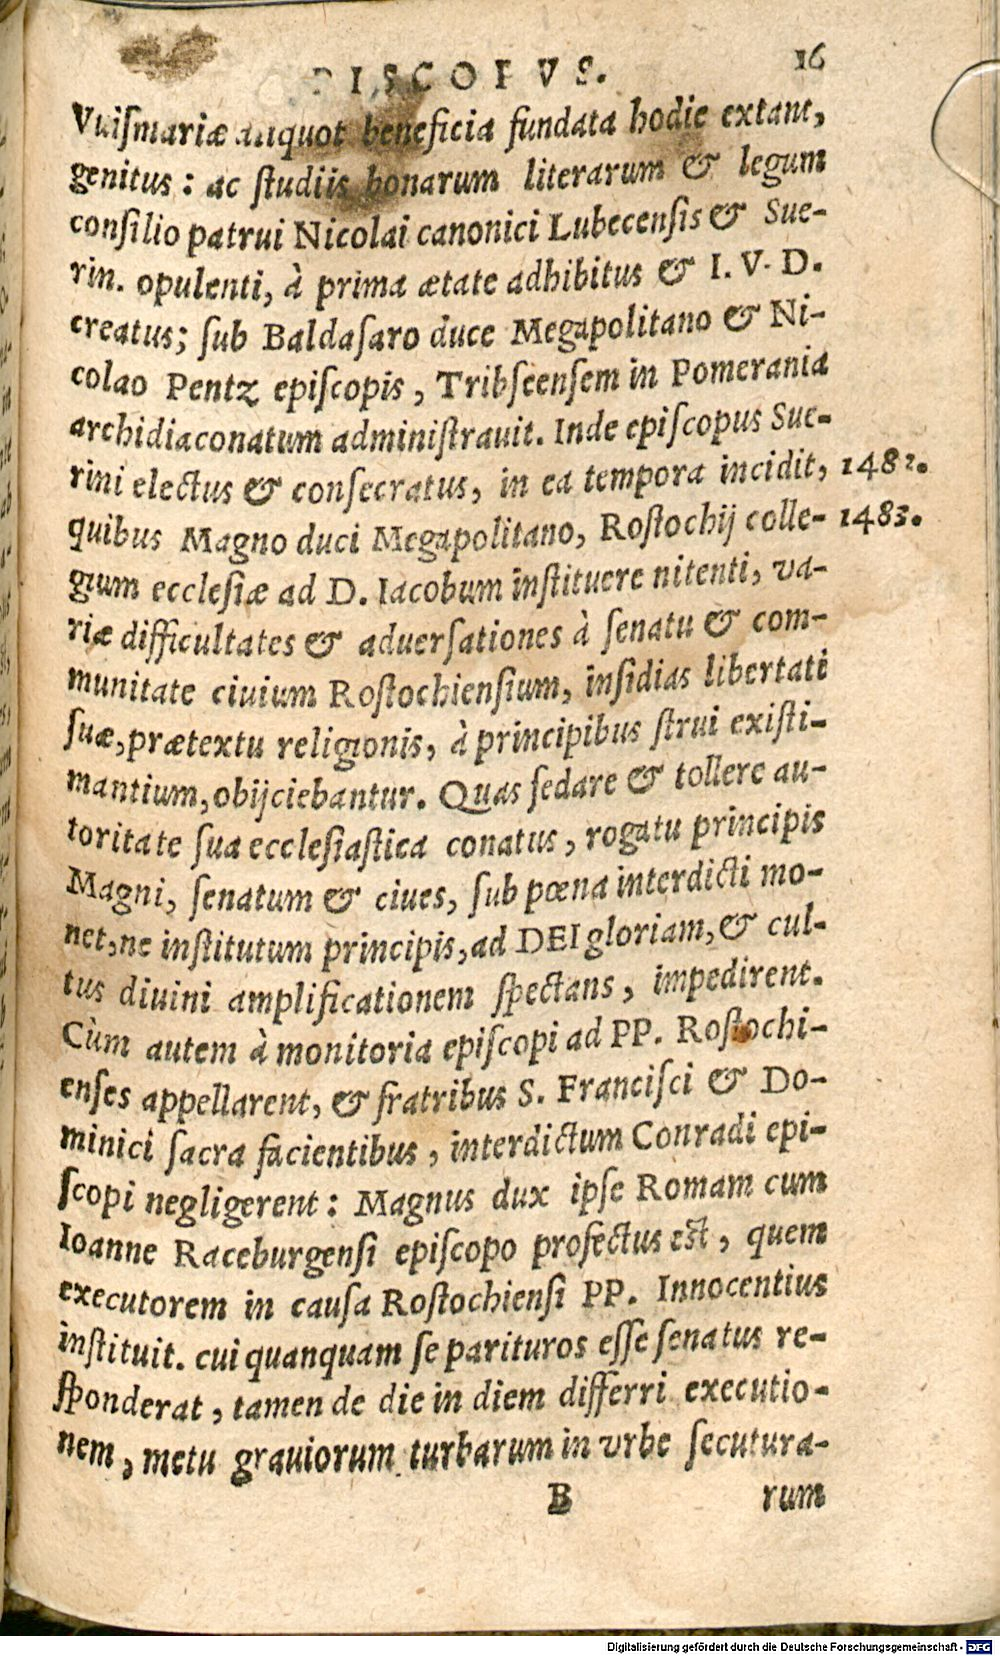 PISCOPVS. 16
Vuiſmariæ aliquot beneficia fundata hodie extant,
genitus: ac ſtudiis bonarum literarum & legum
conſilio patrui Nicolai canonici Lubecenſis & Sue-
rin. opulenti, à prima ætate adhibitus & I. V. D.
creatus; ſub Baldaſaro duce Megapolitano & Ni-
colao Pentz epiſcopis, Tribſeenſem in Pomerania
archidiaconatum adminiſtrauit. Inde epiſcopus Sue-
rini electus & conſecratus, in ea tempora incidit, 1482.
quibus Magno duci Megapolitano, Roſtochij colle- 1483.
gium eccleſiæ ad D. Iacobum inſtituere nitenti, va-
riæ difficultates & aduerſationes à ſenatu & com-
munitate ciuium Roſtochienſium, inſidias libertati
ſuæ, prætextu religionis, à principibus ſtrui exiſti-
mantium, obijciebantur. Quas ſedare & tollere au-
toritate ſua eccleſiaſtica conatus, rogatu principis
Magni, ſenatum & ciues, ſub pœna interdicti mo-
net, ne inſtitutum principis, ad DEI gloriam, & cul-
tus diuini amplificationem ſpectans, impedirent.
Cùm autem à monitoria epiſcopi ad PP. Roſtochi-
enſes appellarent, & fratribus S. Franciſci & Do-
minici ſacra facientibus, interdictum Conradi epi-
ſcopi negligerent: Magnus dux ipſe Romam cum
Ioanne Raceburgenſi epiſcopo profectus eſt, quem
executorem in cauſa Roſtochienſi PP. Innocentius
inſtituit. cui quanquam ſe parituros eſſe ſenatus re-
ſponderat, tamen de die in diem differri executio-
nem, metu grauiorum turbarum in vrbe ſecutura-
B rum
Digitalisierung gefördert durch die Deutsche Forschungsgemeinschaft - DFG